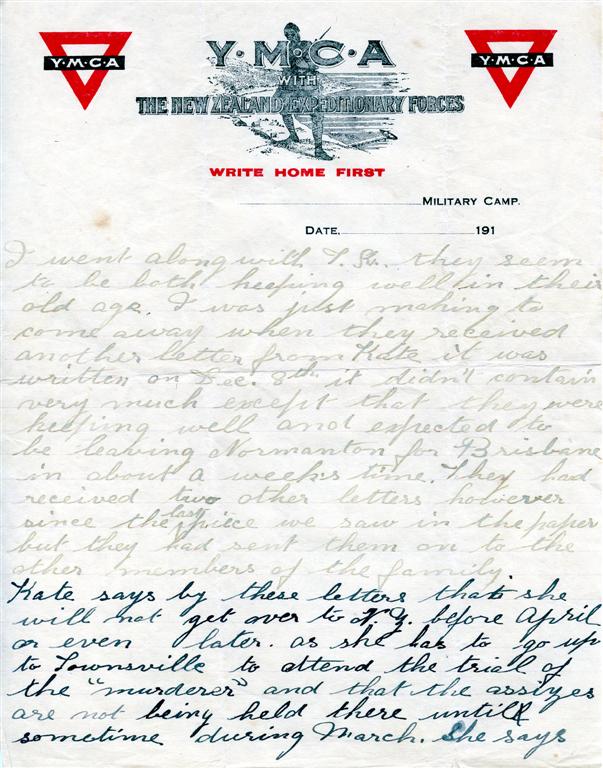 Y·M·C·A
Y·M·C·A
Y·M·C·A
WITH
THE NEW ZEALAND EXPEDITIONARY FORCES
WRITE HOME FIRST
MILITARY CAMP.
DATE, 191
I went along with they seem
to be both keeping well in their
old age. I was just making to
come away when they received
another letter from Kate it was
written on Dec. 8th it didn't contain
very much except that they were
keeping well and expected to
be leaving Normanton for Brisbane
in about a weeks time. They had
received two other letters however
since the last piece we saw in the paper
but they had sent them on to the
other members of the family
Kate says by these letters that she
will not get over to N.Z. before April
or even later. as she has to go up
to Townsville to attend the trial of
the "murderer" and that the assizes
are not being held there until
sometime during March. She says